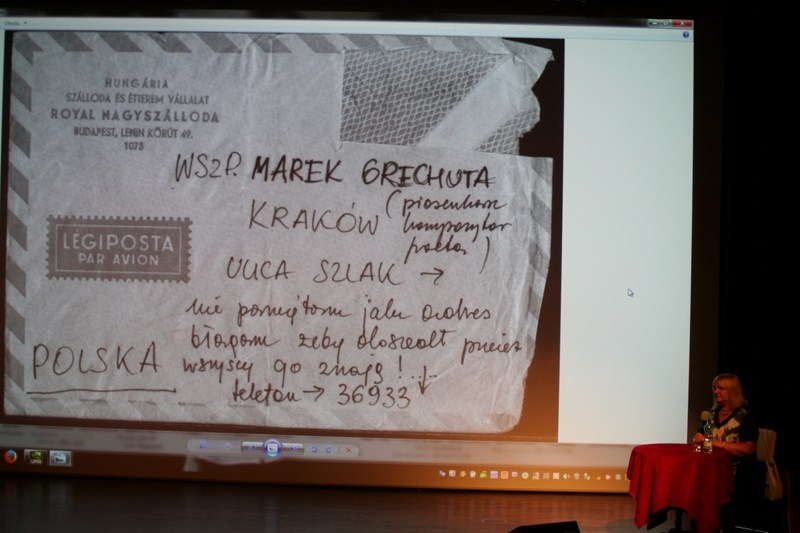 HUNGÁRIA
SZÁLLODA ÉS ÉTTEREM VÁLLALAT
ROYAL NAGYSZÁLLODA
BUDAPEST, LENIN KÖRÚT 49.
1073
WSZP. MAREK GRECHUTA
KRAKÓW (piosenkarz
kompozytor
poeta)
ULICA SZLAK →
nie pamiętam jaki adres
błagam żeby doszedł przecież
wszyscy go znają!
telefon → 36933
POLSKA
LÉGIPOSTA
PAR AVION